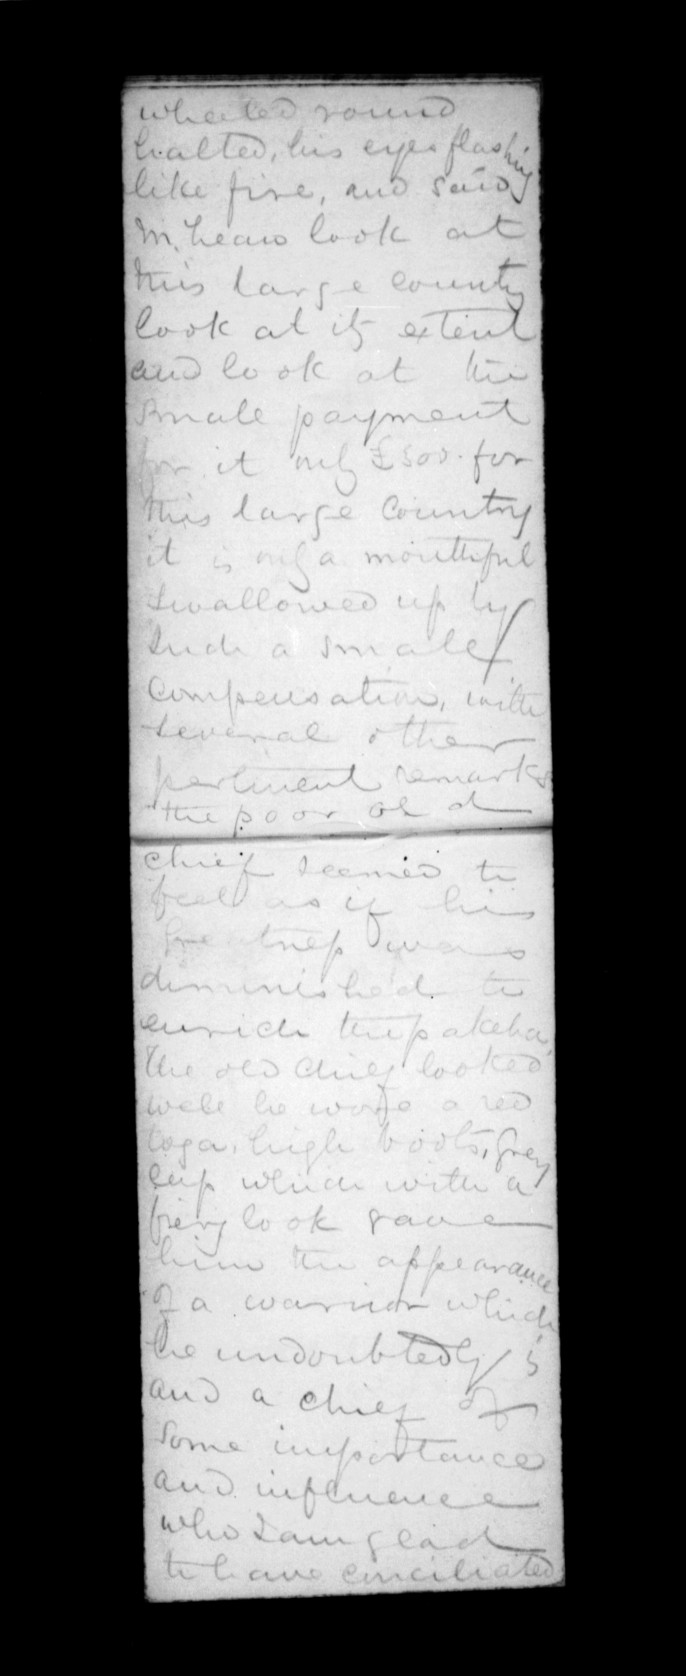 wheeled round
halted, his eyes flashing
like fire, and said
McLean look at
this large country
look at its extent
and look at the
small payment
for it only £500. for
this large country
it is only a mouthful
swallowed up by
such a small
compensation, with
several other
pertinent remarks
the poor old
chief seemed to
feel as if his
greatness was
diminished to
enrich the pakeha,
The old chief looked
well he wore a red
toga, high boots, grey
cap which with a
fiery look gave
him the appearance
of a warrior which
he undoubtedly is
and a chief of
some importance
and influence
who I am glad
to have conciliated